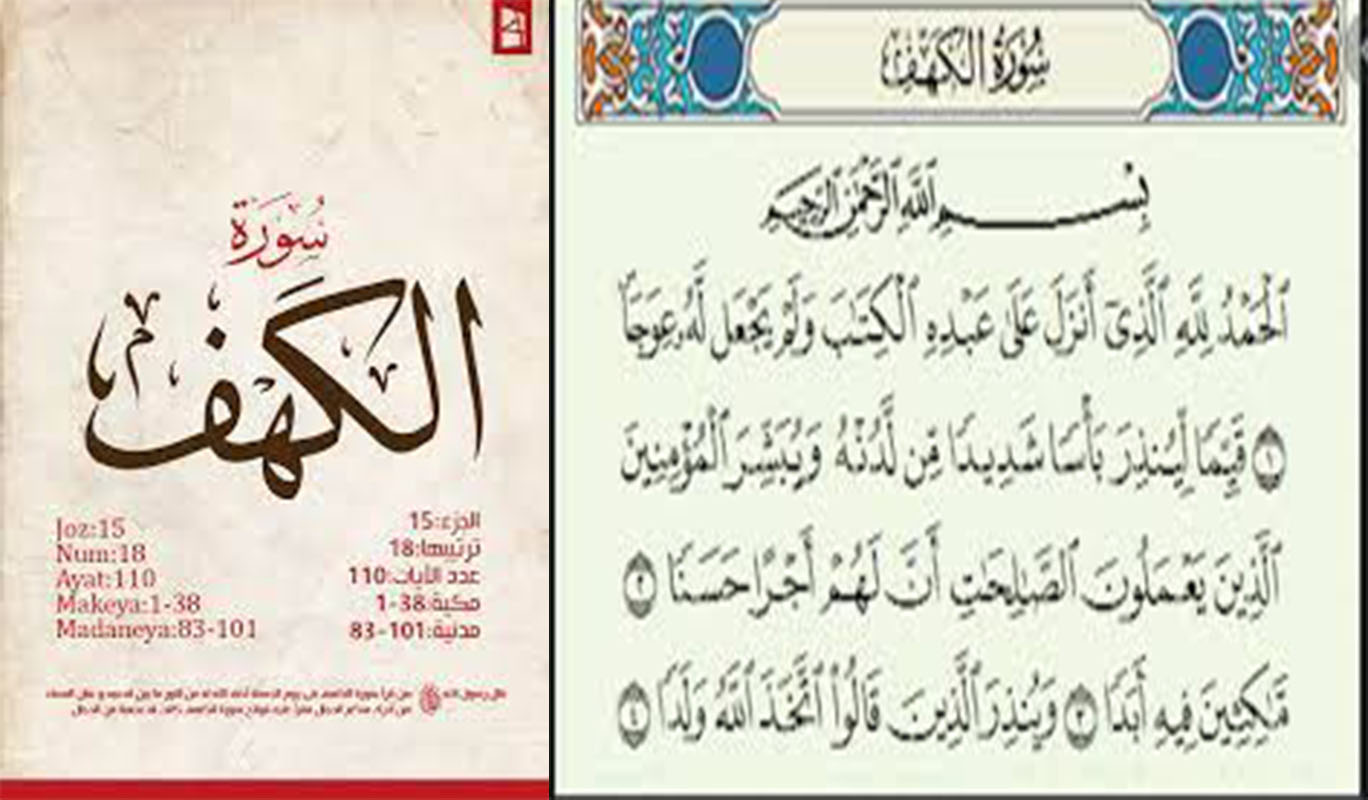 سُورَة
الكَهف
Joz:15
Num:18
Ayat:110
Makeya:1-38
Madaneya:83-101
الجزء:15
ترتيبها:18
عدد الآيات:110
مكية:38-1
مدنية:101-83
سُورَةُ الكَهْفِ
بِسْمِ ٱللَّهِ ٱلرَّحْمَٰنِ ٱلرَّحِيمِ
ٱلْحَمْدُ لِلَّهِ ٱلَّذِىٓ أَنزَلَ عَلَىٰ عَبْدِهِ ٱلْكِتَٰبَ وَلَمْ يَجْعَل لَّهُۥ عِوَجَا
١ قَيِّمًا لِّيُنذِرَ بَأْسًا شَدِيدًا مِّن لَّدُنْهُ وَيُبَشِّرَ ٱلْمُؤْمِنِينَ
ٱلَّذِينَ يَعْمَلُونَ ٱلصَّٰلِحَٰتِ أَنَّ لَهُمْ أَجْرًا حَسَنًا ٢
مَّٰكِثِينَ فِيهِ أَبَدًا ٣ وَيُنذِرَ ٱلَّذِينَ قَالُوا۟ ٱتَّخَذَ ٱللَّهُ وَلَدًا ٤